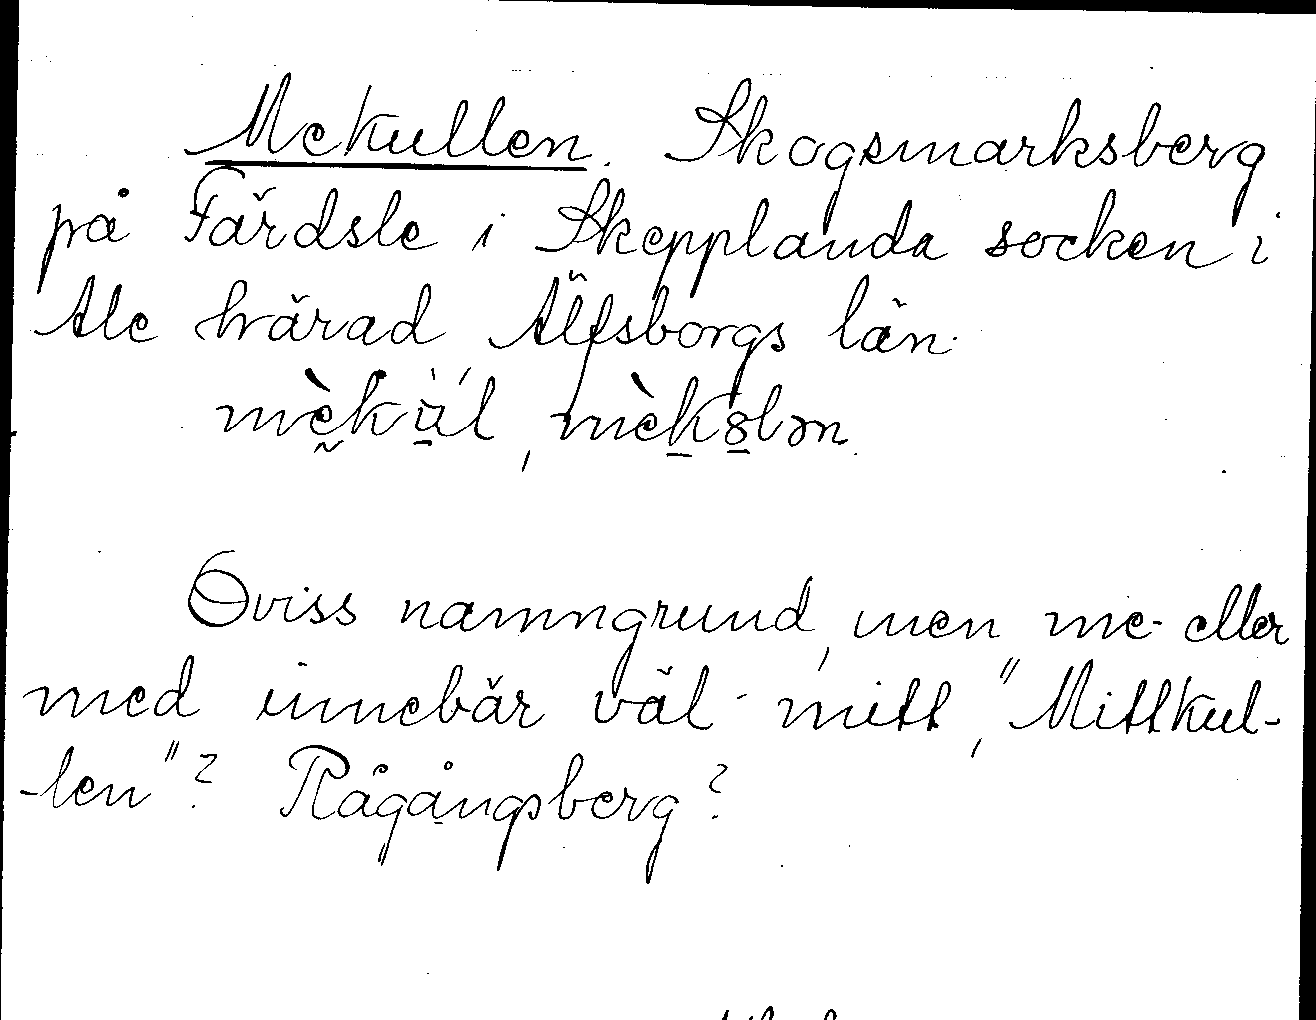 Mekullen. Skogsmarksberg
på Färdsle i Skepplanda socken i
Ale härad, Älfsborgs län.
mèkul, mèkslən.
Oviss namngrund, men me- eller
med innebär väl mitt, "Mittkul-
len"? Rågångsberg?